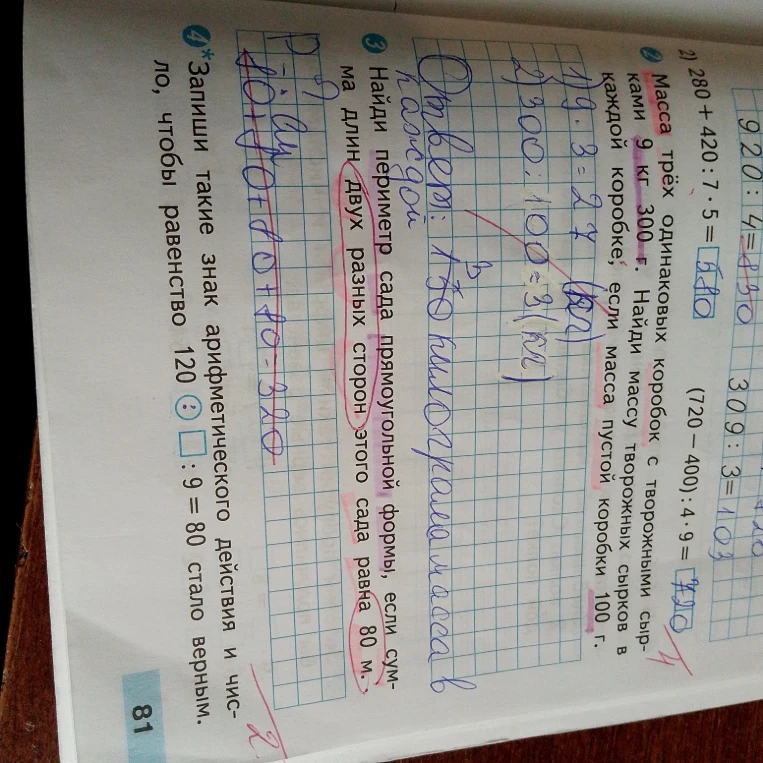 920 : 4 = 230 309 : 3 = 103
2) 280 + 420 : 7 · 5 = 580 (720 − 400) : 4 · 9 = 720
4
2 Масса трёх одинаковых коробок с творожными сыр-
ками 9 кг 300 г. Найди массу творожных сырков в
каждой коробке, если масса пустой коробки 100 г.
1) 9 · 3 = 27 (кг)
2) 300 : 100 = 3 (кг)
Ответ: килограма масса в
каждой
3 Найди периметр сада прямоугольной формы, если сум-
ма длин двух разных сторон этого сада равна 80 м.
P - ?
80 + 80 + 80 + 80 = 320
2
4* Запиши такие знак арифметического действия и чис-
ло, чтобы равенство 120 : 9 = 80 стало верным.
81